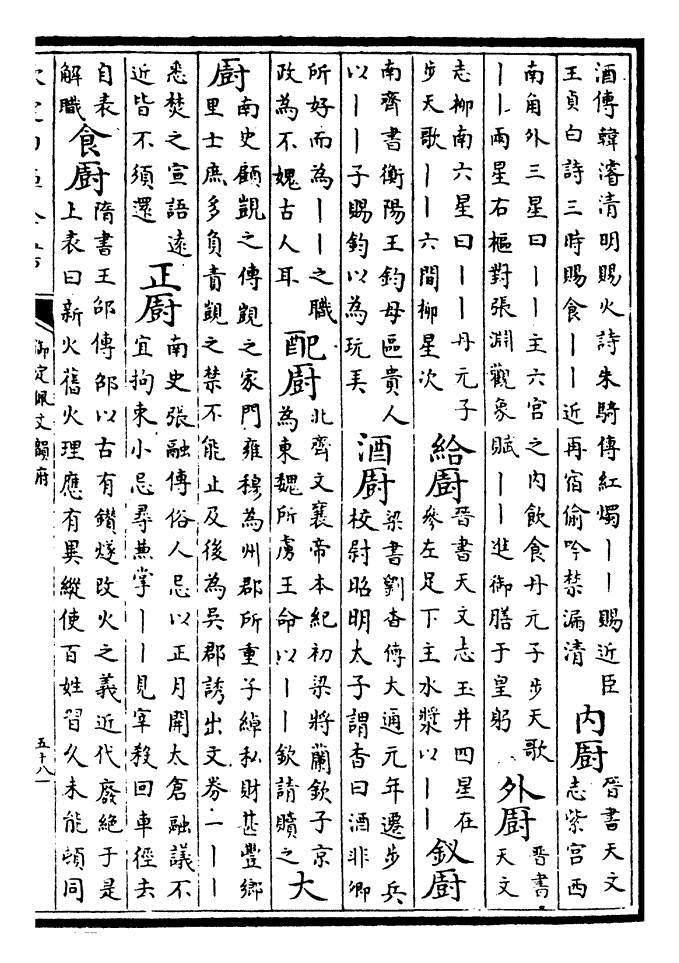 酒傳韓濬清明賜火詩朱騎傳紅燭丨丨賜近臣
王貞白詩三時賜食丨丨近再宿偷吟禁漏清
内厨
晉書天文
志紫宫西
南角外三星曰丨丨主六宫之内飲食丹元子步天歌
丨丨兩星右樞對張淵觀象賦丨丨進御膳于皇躬
外厨
晉書
天文
志柳南六星曰丨丨丹元子
步天歌丨丨六間柳星次
給厨
晉書天文志玉井四星在
參左足下主水漿以丨丨
釵厨
南齊書衡陽王鈞母區貴人
以丨丨子賜鈞以為玩美
酒厨
梁書劉杳傳大通元年遷步兵
校尉昭明太子謂杳曰酒非卿
所好而為丨丨之職
政為不媿古人耳
配厨
北齊文襄帝本紀初梁將蘭欽子京
為東魏所虜王命以丨丨欽請贖之
大
厨
南史顧覬之傳覬之家門雍穆為州郡所重子綽私財甚豐鄉
里士庶多負責覬之禁不能止及後為吳郡誘出文券一丨丨
悉焚之宣語遠
近皆不須還
正厨
南史張融傳俗人忌以正月開太倉融議不
宜拘束小忌尋兼掌丨丨見宰殺回車徑去
自表
解職
食厨
隋書王劭傳劭以古有鑽燧改火之義近代廢絶于是
上表曰新火舊火理應有異縱使百姓習久未能頓同
御定佩文韻府
五十八